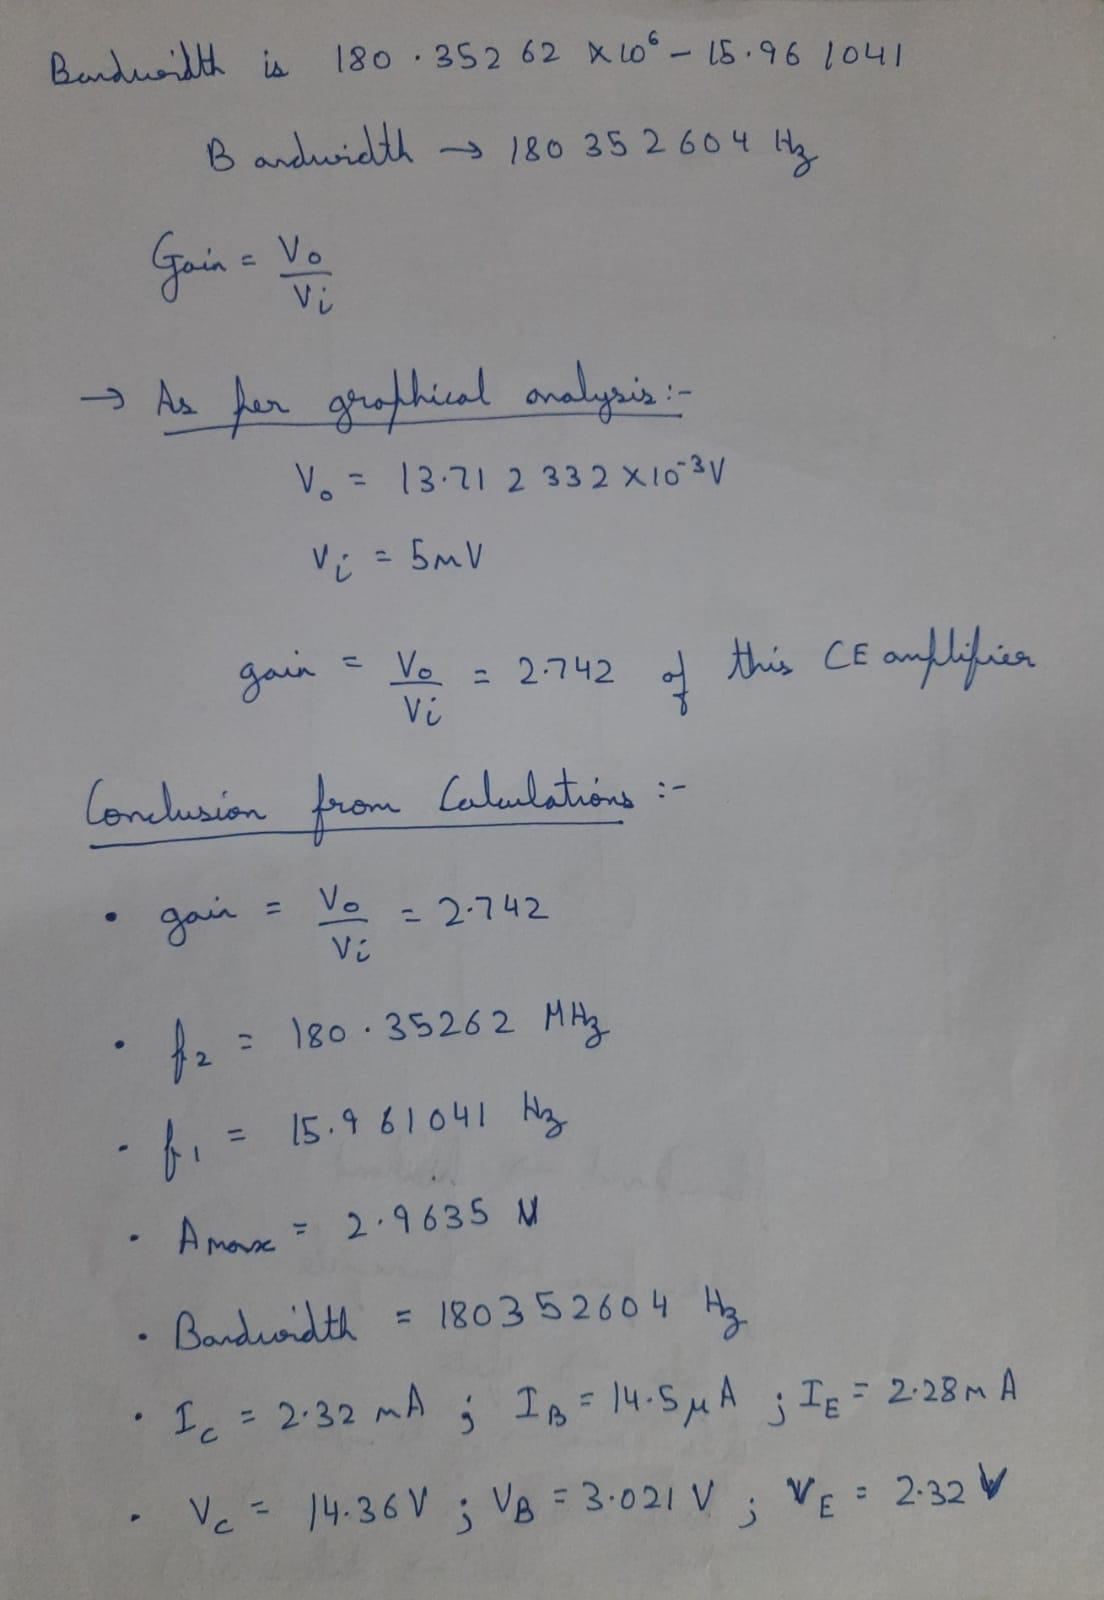 Bandwidth is 180.35262 x10⁶ - 15.961041
Bandwidth → 180352604 Hz
Gain = Vo/Vi
→ As per graphical analysis :-
Vo = 13.712332 x10⁻³V
Vi = 5mV
gain = Vo/Vi = 2.742 of this CE amplifier
Conclusion from Calculations :-
• gain = Vo/Vi = 2.742
• f2 = 180.35262 MHz
• f1 = 15.961041 Hz
• Amax = 2.9635
• Bandwidth = 180352604 Hz
• IC = 2.32 mA ; IB = 14.5 μA ; IE = 2.28mA
• VC = 14.36V ; VB = 3.021 V ; VE = 2.32 V